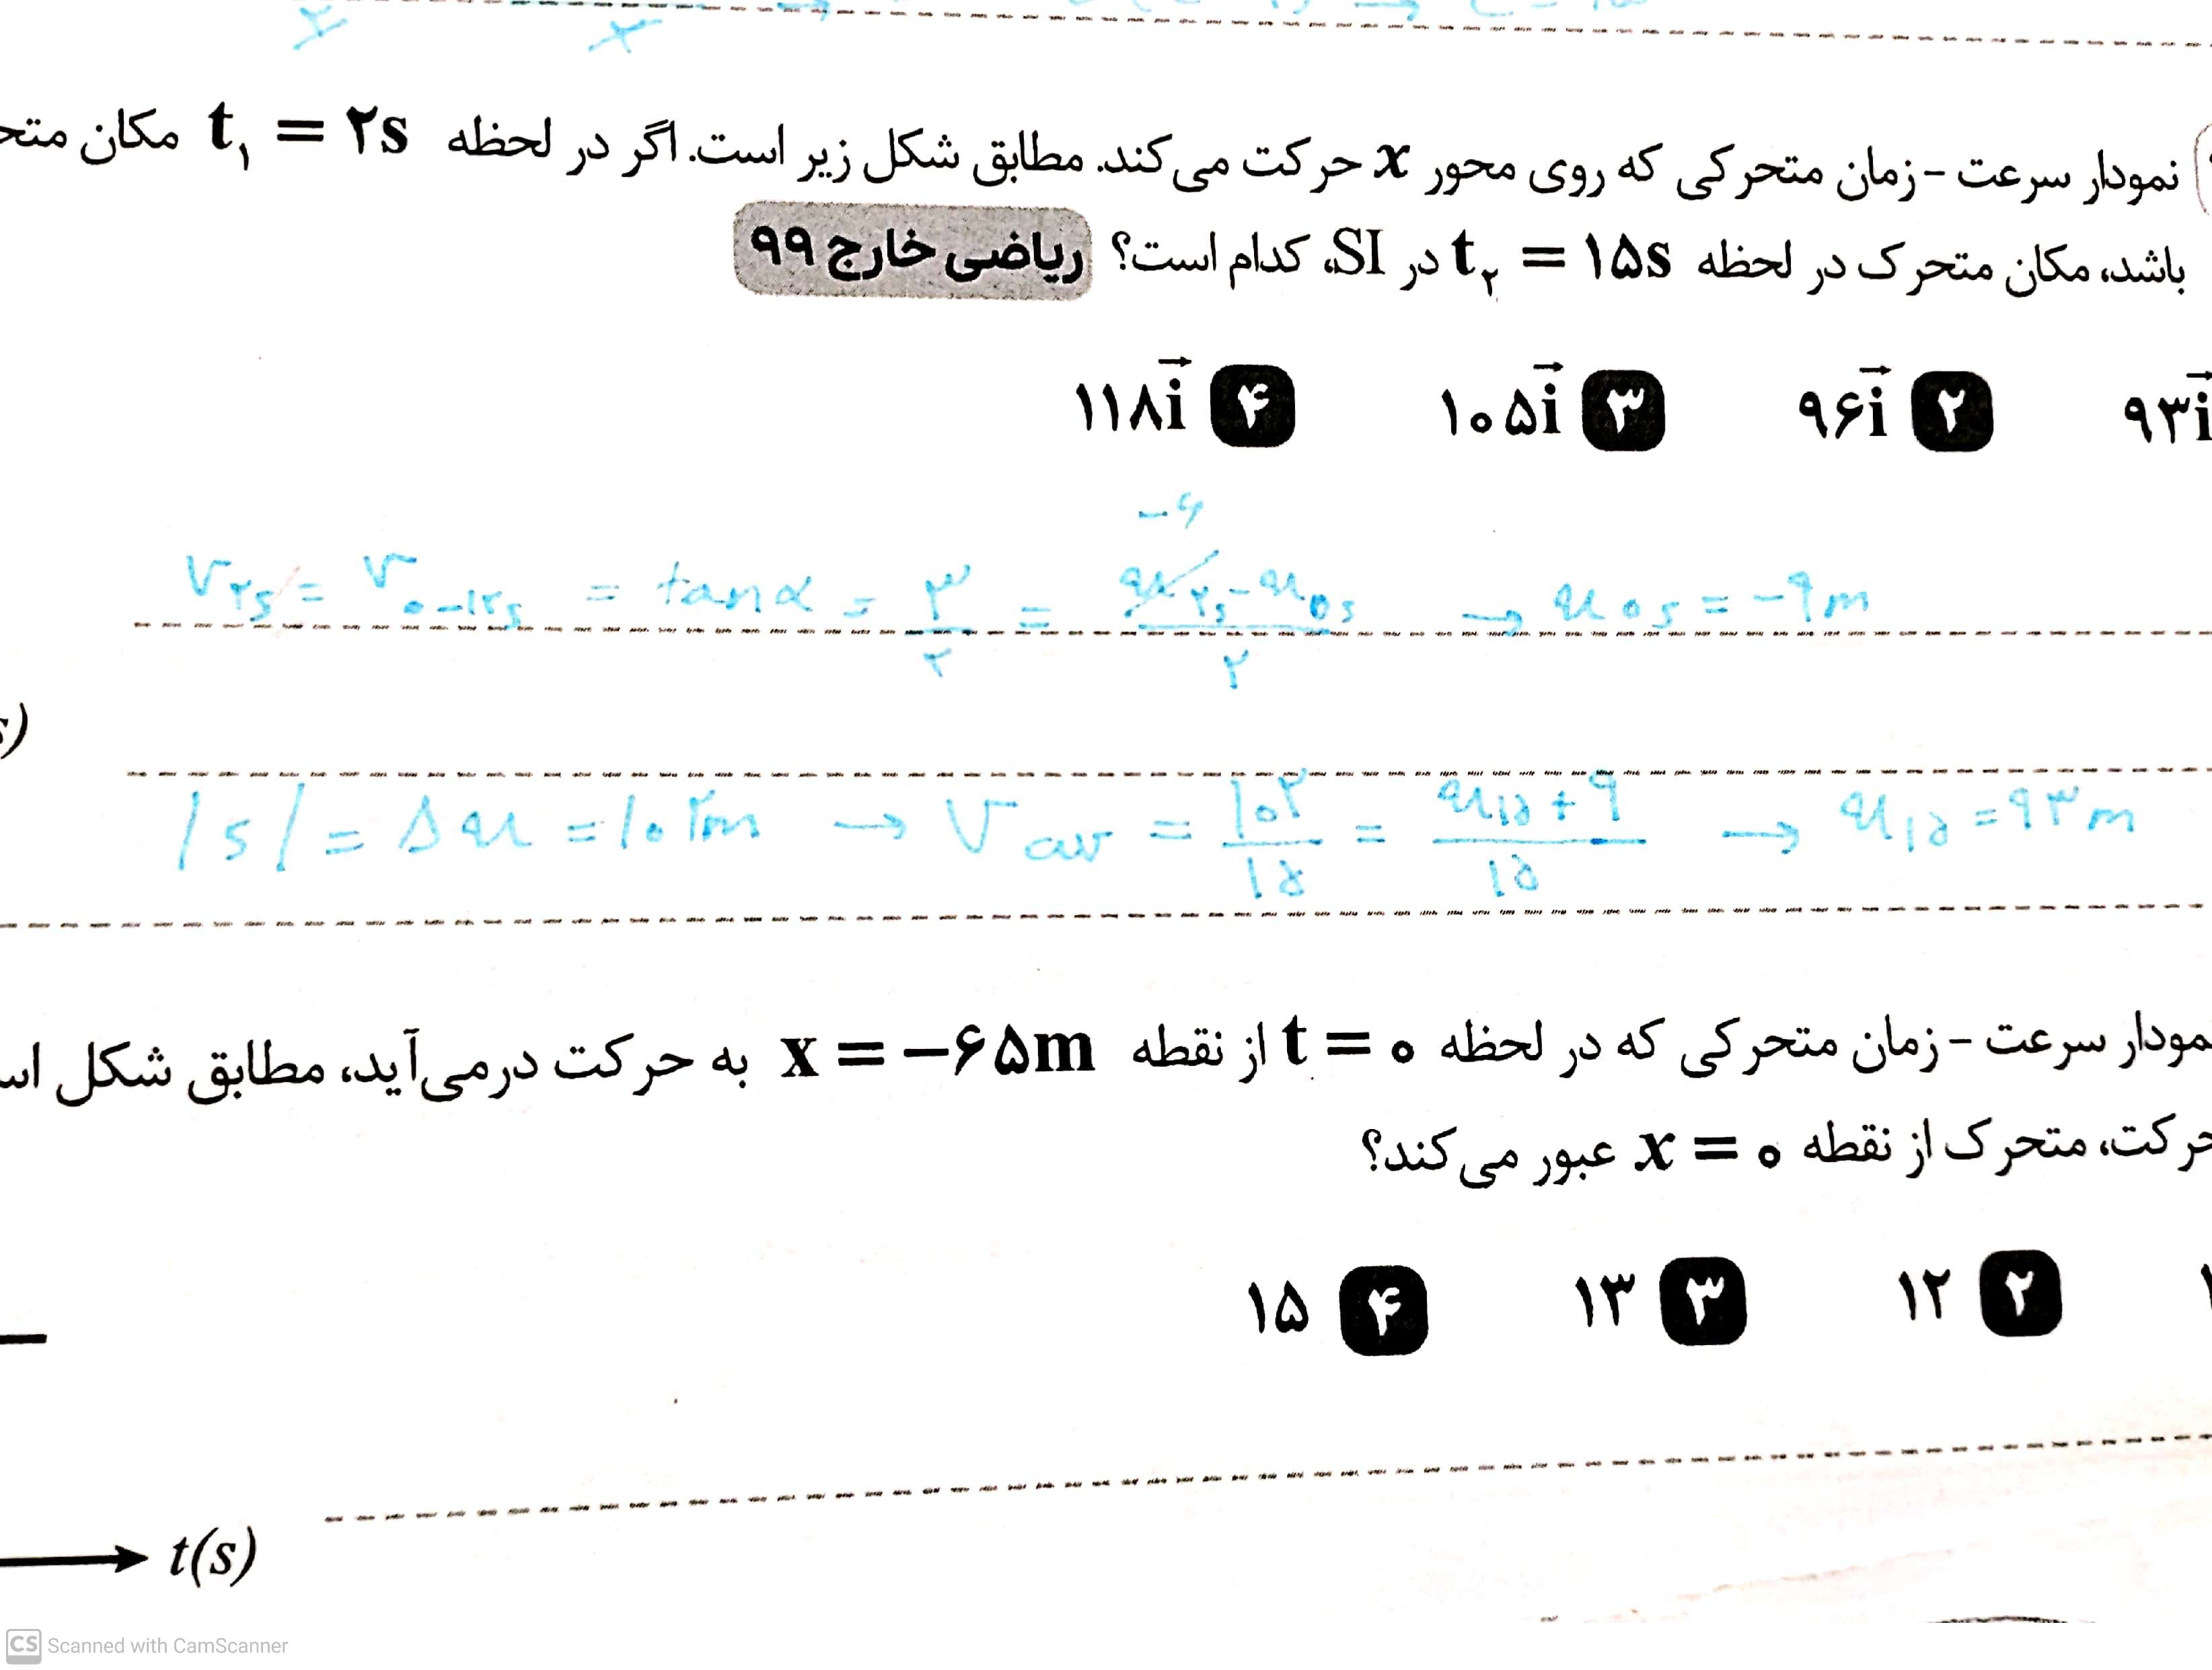 نمودار سرعت - زمان متحرکی که روی محور x حرکت می‌کند. مطابق شکل زیر است. اگر در لحظه t₁ = ۲s مکان متح
باشد، مکان متحرک در لحظه t₂ = ۱۵s در SI، کدام است؟ ریاضی خارج ۹۹
۹۳i⃗ ۲ ۹۶i⃗ ۳ ۱۰۵i⃗ ۴ ۱۱۸i⃗
-۶
V₂s = V₀₋₁₂s = tan α = ۳/۲ = (x₂s - x₀s)/۲ → x₀s = -۹m
s)
|s| = Δx = ۱۰۲m → Vav = ۱۰۲/۱۵ = (x₁₅ + ۹)/۱۵ → x₁₅ = ۹۳m
مودار سرعت - زمان متحرکی که در لحظه t = ۰ از نقطه x = -۶۵m به حرکت درمی‌آید، مطابق شکل اس
حرکت، متحرک از نقطه x = ۰ عبور می‌کند؟
۲ ۱۲ ۳ ۱۳ ۴ ۱۵
t(s)
CS Scanned with CamScanner